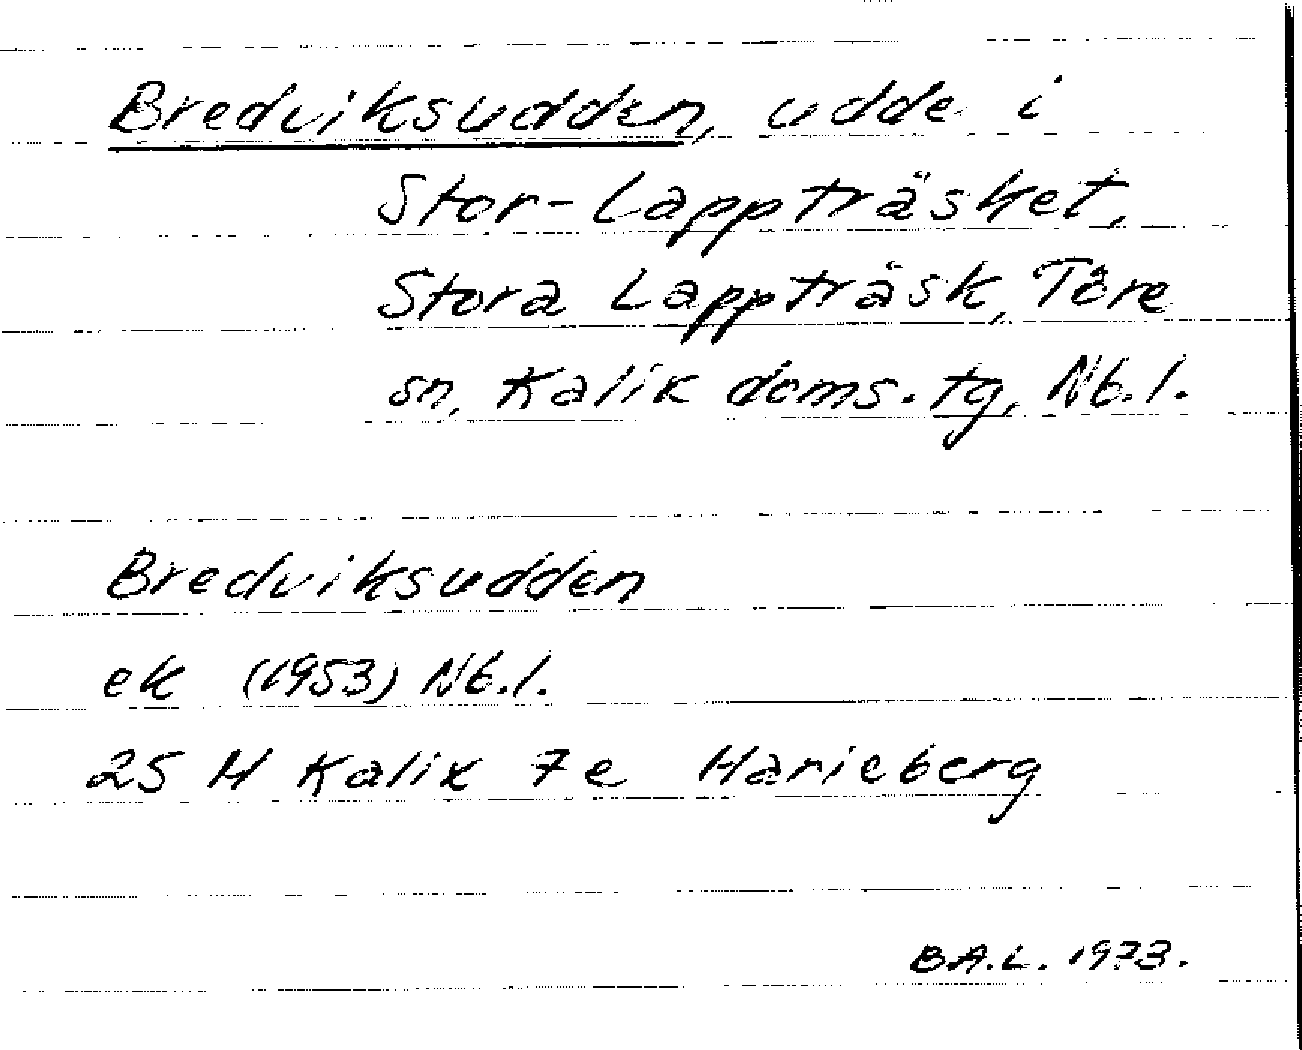 Bredviksudden, udde i
Stor-Lappträsket,
Stora Lappträsk, Töre
sn, Kalix doms.tg, Nb.l.
Bredviksudden
ek (1953) Nb.l.
25 M Kalix 7e Marieberg
B.A.L. 1973.